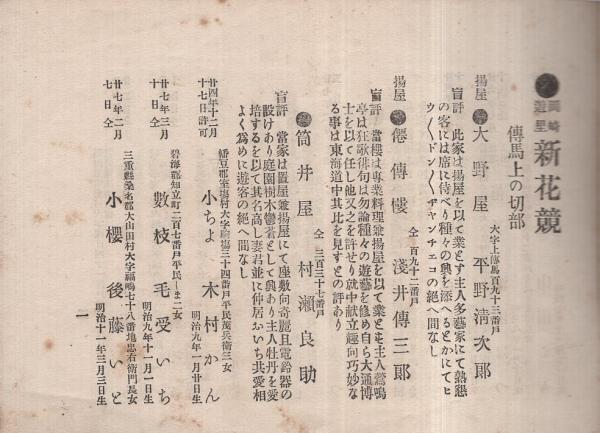 岡崎
遊里
新花競
傳馬上の切部
大字上傳馬百九十三番戸
揚屋 大野屋 平野清次郎
盲評 此家は揚屋を以て業とす主人多藝家にて熟懇
の客には席に侍べり種々の興を添へるとかにてヒ
ウ〱ドン〱ヂャンチェコの絶へ間なし
仝 百九十二番戸
揚屋 僊傳樓 淺井傳三郎
盲評 當樓は專業料理兼揚屋を以て業とも主人鶯鳴
亭は狂歌俳句は勿論種々の遊藝を修め自ら大通博
士を以て任し他又之を許せり就中献立趣向巧妙な
る事は東海道中其比を見すとの評あり
仝 三百三十七番戸
筒井屋 村瀬良助
盲評 當家は置屋兼揚屋にて座敷向奇麗且電鈴器の
設けあり庭園樹木鬱蒼として興あり主人牡丹を愛
培するを以て其名高し妻君並に仲居おいち共愛相
よく爲めに遊客の絶へ間なし
廿四年十二月
十七日許可
幡豆郡室塲村大字 三十四番戸平民茂兵衞三女
小ちよ 木村かん
明治九年一月廿日生
廿七年三月
十日仝
碧海郡知立町二百七番戸平民しま二女
數枝 毛受いち
明治九年十一月一日生
廿七年二月
七日仝
三重縣桑名郡大山田村大字福嶋七十八番地忠右衞門長女
小櫻 後藤いと
明治十一年三月三日生
一